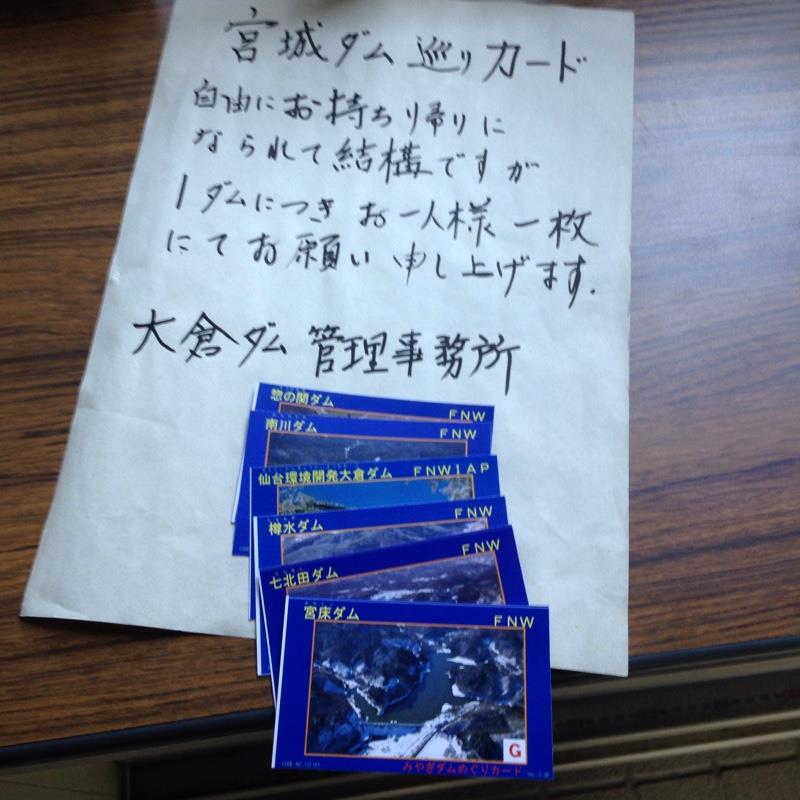 宮城ダム巡りカード
自由にお持ち帰りに
なられて結構ですが
1ダムにつきお一人様一枚
にてお願い申し上げます.
大倉ダム管理事務所
惣の関ダム FNW
南川ダム FNW
仙台環境開発大倉ダム FNWIAP
樽水ダム FNW
七北田ダム FNW
宮床ダム FNW
G
みやぎダムめぐりカード